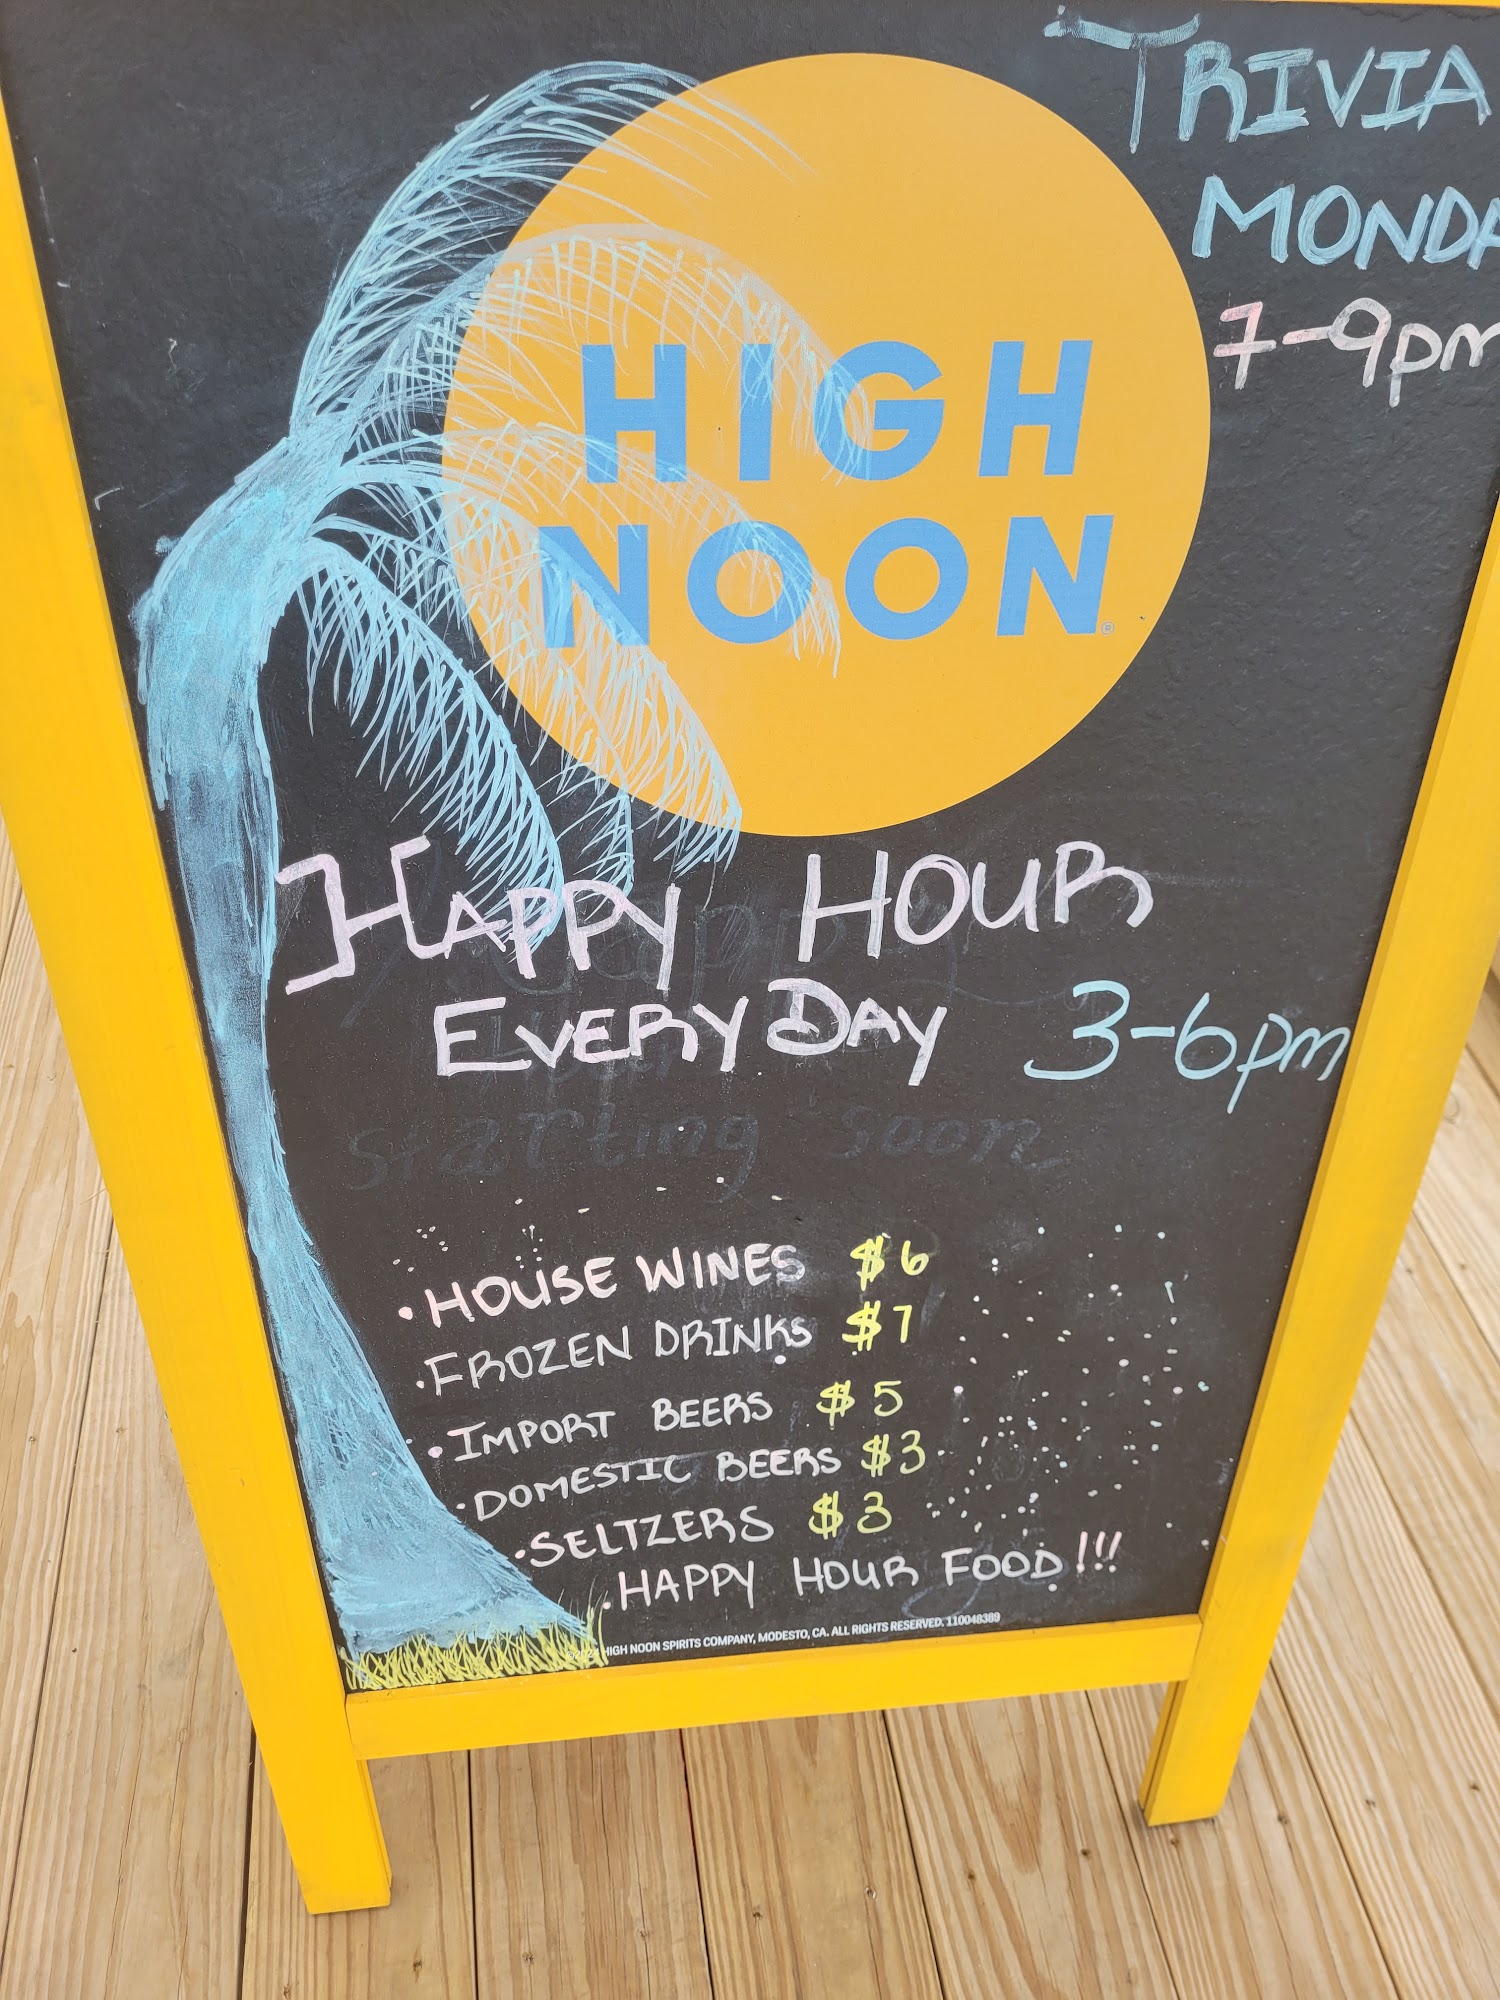 TRIVIA
MONDA
7-9pm
HIGH
NOON®
HAPPY HOUR
EVERYDAY 3-6pm
starting soon
• HOUSE WINES $6
• FROZEN DRINKS $7
• IMPORT BEERS $5
• DOMESTIC BEERS $3
• SELTZERS $3
• HAPPY HOUR FOOD!!!
HIGH NOON SPIRITS COMPANY, MODESTO, CA. ALL RIGHTS RESERVED. 110048389